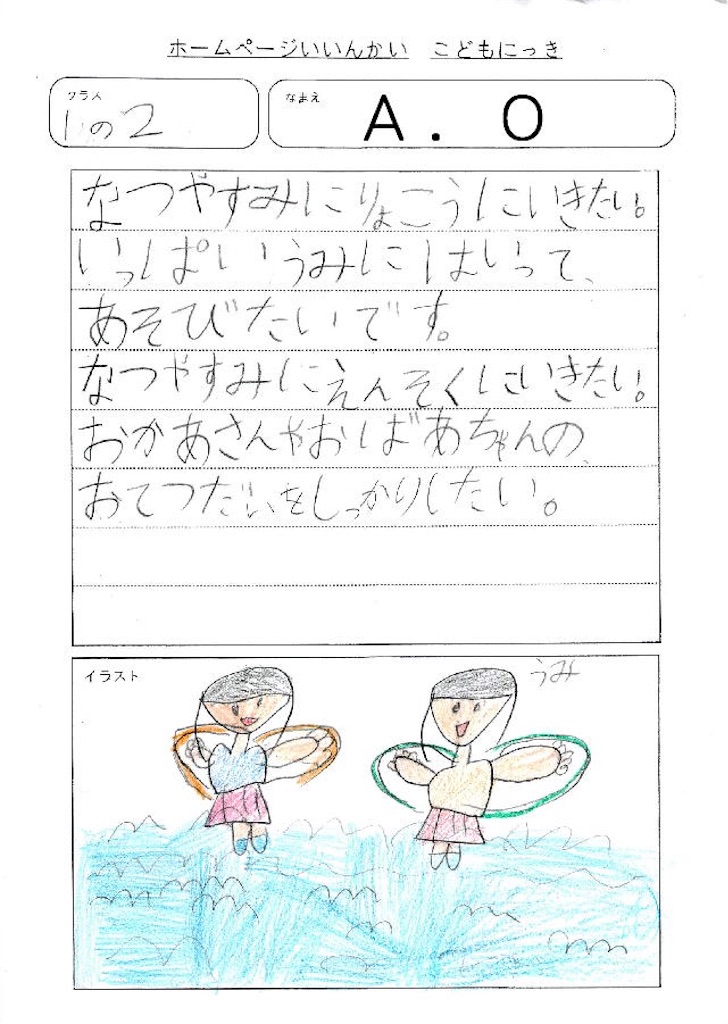 ホームページいいんかい　こどもにっき
クラス
1の2
なまえ
A．O
なつやすみにりょこうにいきたい。
いっぱいうみにはいって、
あそびたいです。
なつやすみにえんそくにいきたい。
おかあさんやおばあちゃんの、
おてつだいをしっかりしたい。
イラスト
うみ